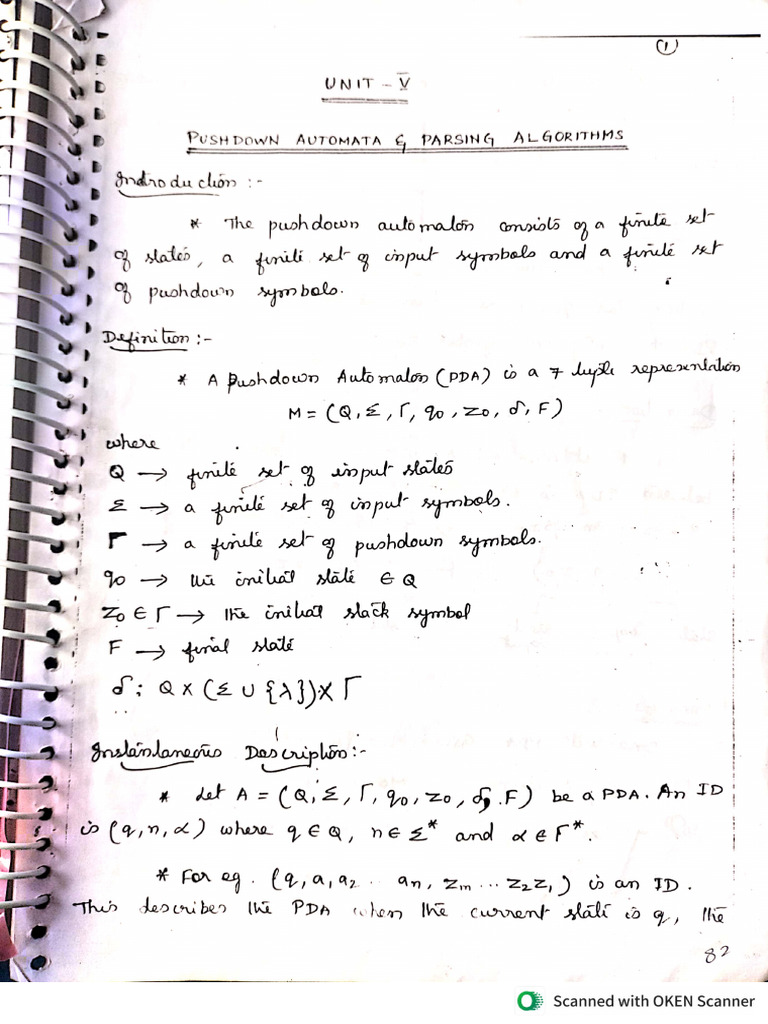 1
UNIT - V
PUSHDOWN AUTOMATA & PARSING ALGORITHMS
Introduction :-
* The pushdown automaton consists of a finite set
of states, a finite set of input symbols and a finite set
of pushdown symbols.
Definition :-
* A Pushdown Automaton (PDA) is a 7 tuple representation
M = (Q, Σ, Γ, q0, z0, δ, F)
where
Q → finite set of input states
Σ → a finite set of input symbols.
Γ → a finite set of pushdown symbols.
q0 → the initial state ∈ Q
Z0 ∈ Γ → the initial stack symbol
F → final state
δ : Q X (Σ ∪ {λ}) X Γ
Instantaneous Description :-
* Let A = (Q, Σ, Γ, q0, z0, δ, F) be a PDA. An ID
is (q, n, α) where q ∈ Q, n ∈ Σ* and α ∈ Γ*.
* For eg. (q, a, a2 .. an, Zm ... Z2 Z1) is an ID.
This describes the PDA when the current state is q, the
82
Scanned with OKEN Scanner